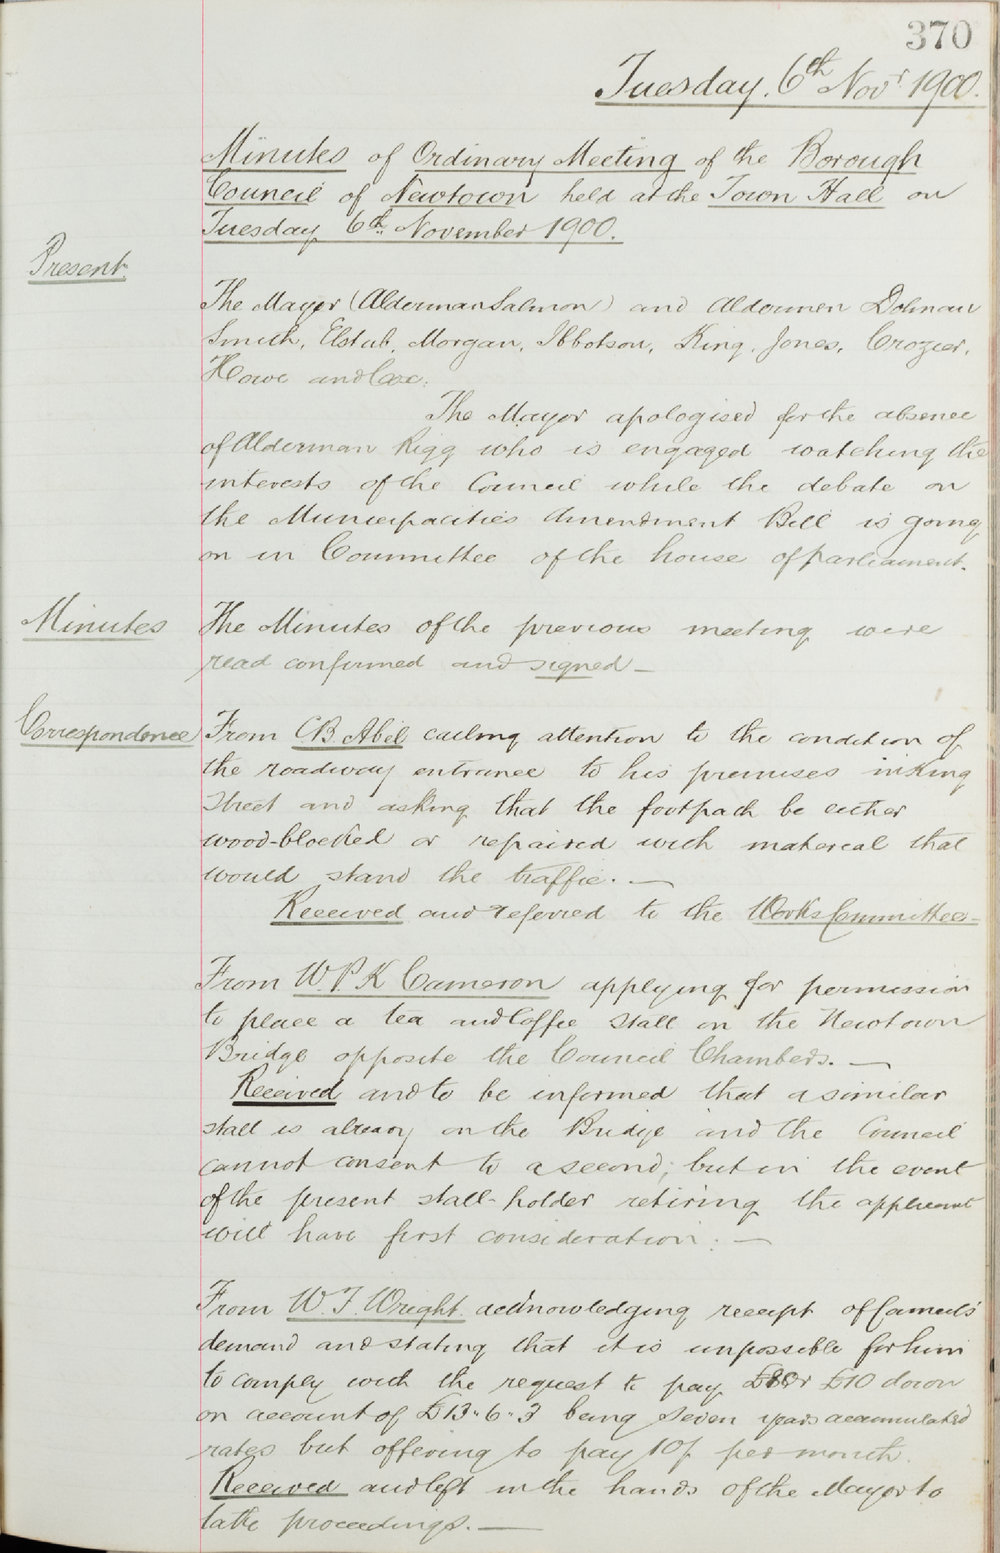 370
Tuesday. 6th Novr 1900.
Minutes of Ordinary Meeting of the Borough
Council of Newtown held at the Town Hall on
Tuesday 6th November 1900.
Present.
The Mayor (Alderman Salmon) and Aldermen Dolman
Smith, Elstub, Morgan, Ibbotson, King, Jones, Crozier,
Howe and Cox.
The Mayor apologised for the absence
of Alderman Rigg who is engaged watching the
interests of the Council while the debate on
the Municipalities Amendment Bill is going
on in Committee of the house of parliament.
Minutes
The Minutes of the previous meeting were
read confirmed and signed—
Correspondence
From CB Abel calling attention to the condition of
the roadway entrance to his premises in King
Street and asking that the footpath be either
wood-blocked or repaired with material that
would stand the traffic. —
Received and referred to the Works Committee—
From W. P. K Cameron applying for permission
to place a tea and Coffee Stall on the Newtown
Bridge opposite the Council Chambers. —
Received and to be informed that a similar
stall is already on the Bridge and the Council
cannot consent to a second; but in the event
of the present stall-holder retiring the applicant
will have first consideration. —
From W. T. Wright acknowledging receipt of Council's
demand and stating that it is impossible for him
to comply with the request to pay £8 or £10 down
on account of £13-6-3 being seven years accumulated
rates but offering to pay 10/ per month.
Received and left in the hands of the Mayor to
take proceedings. —